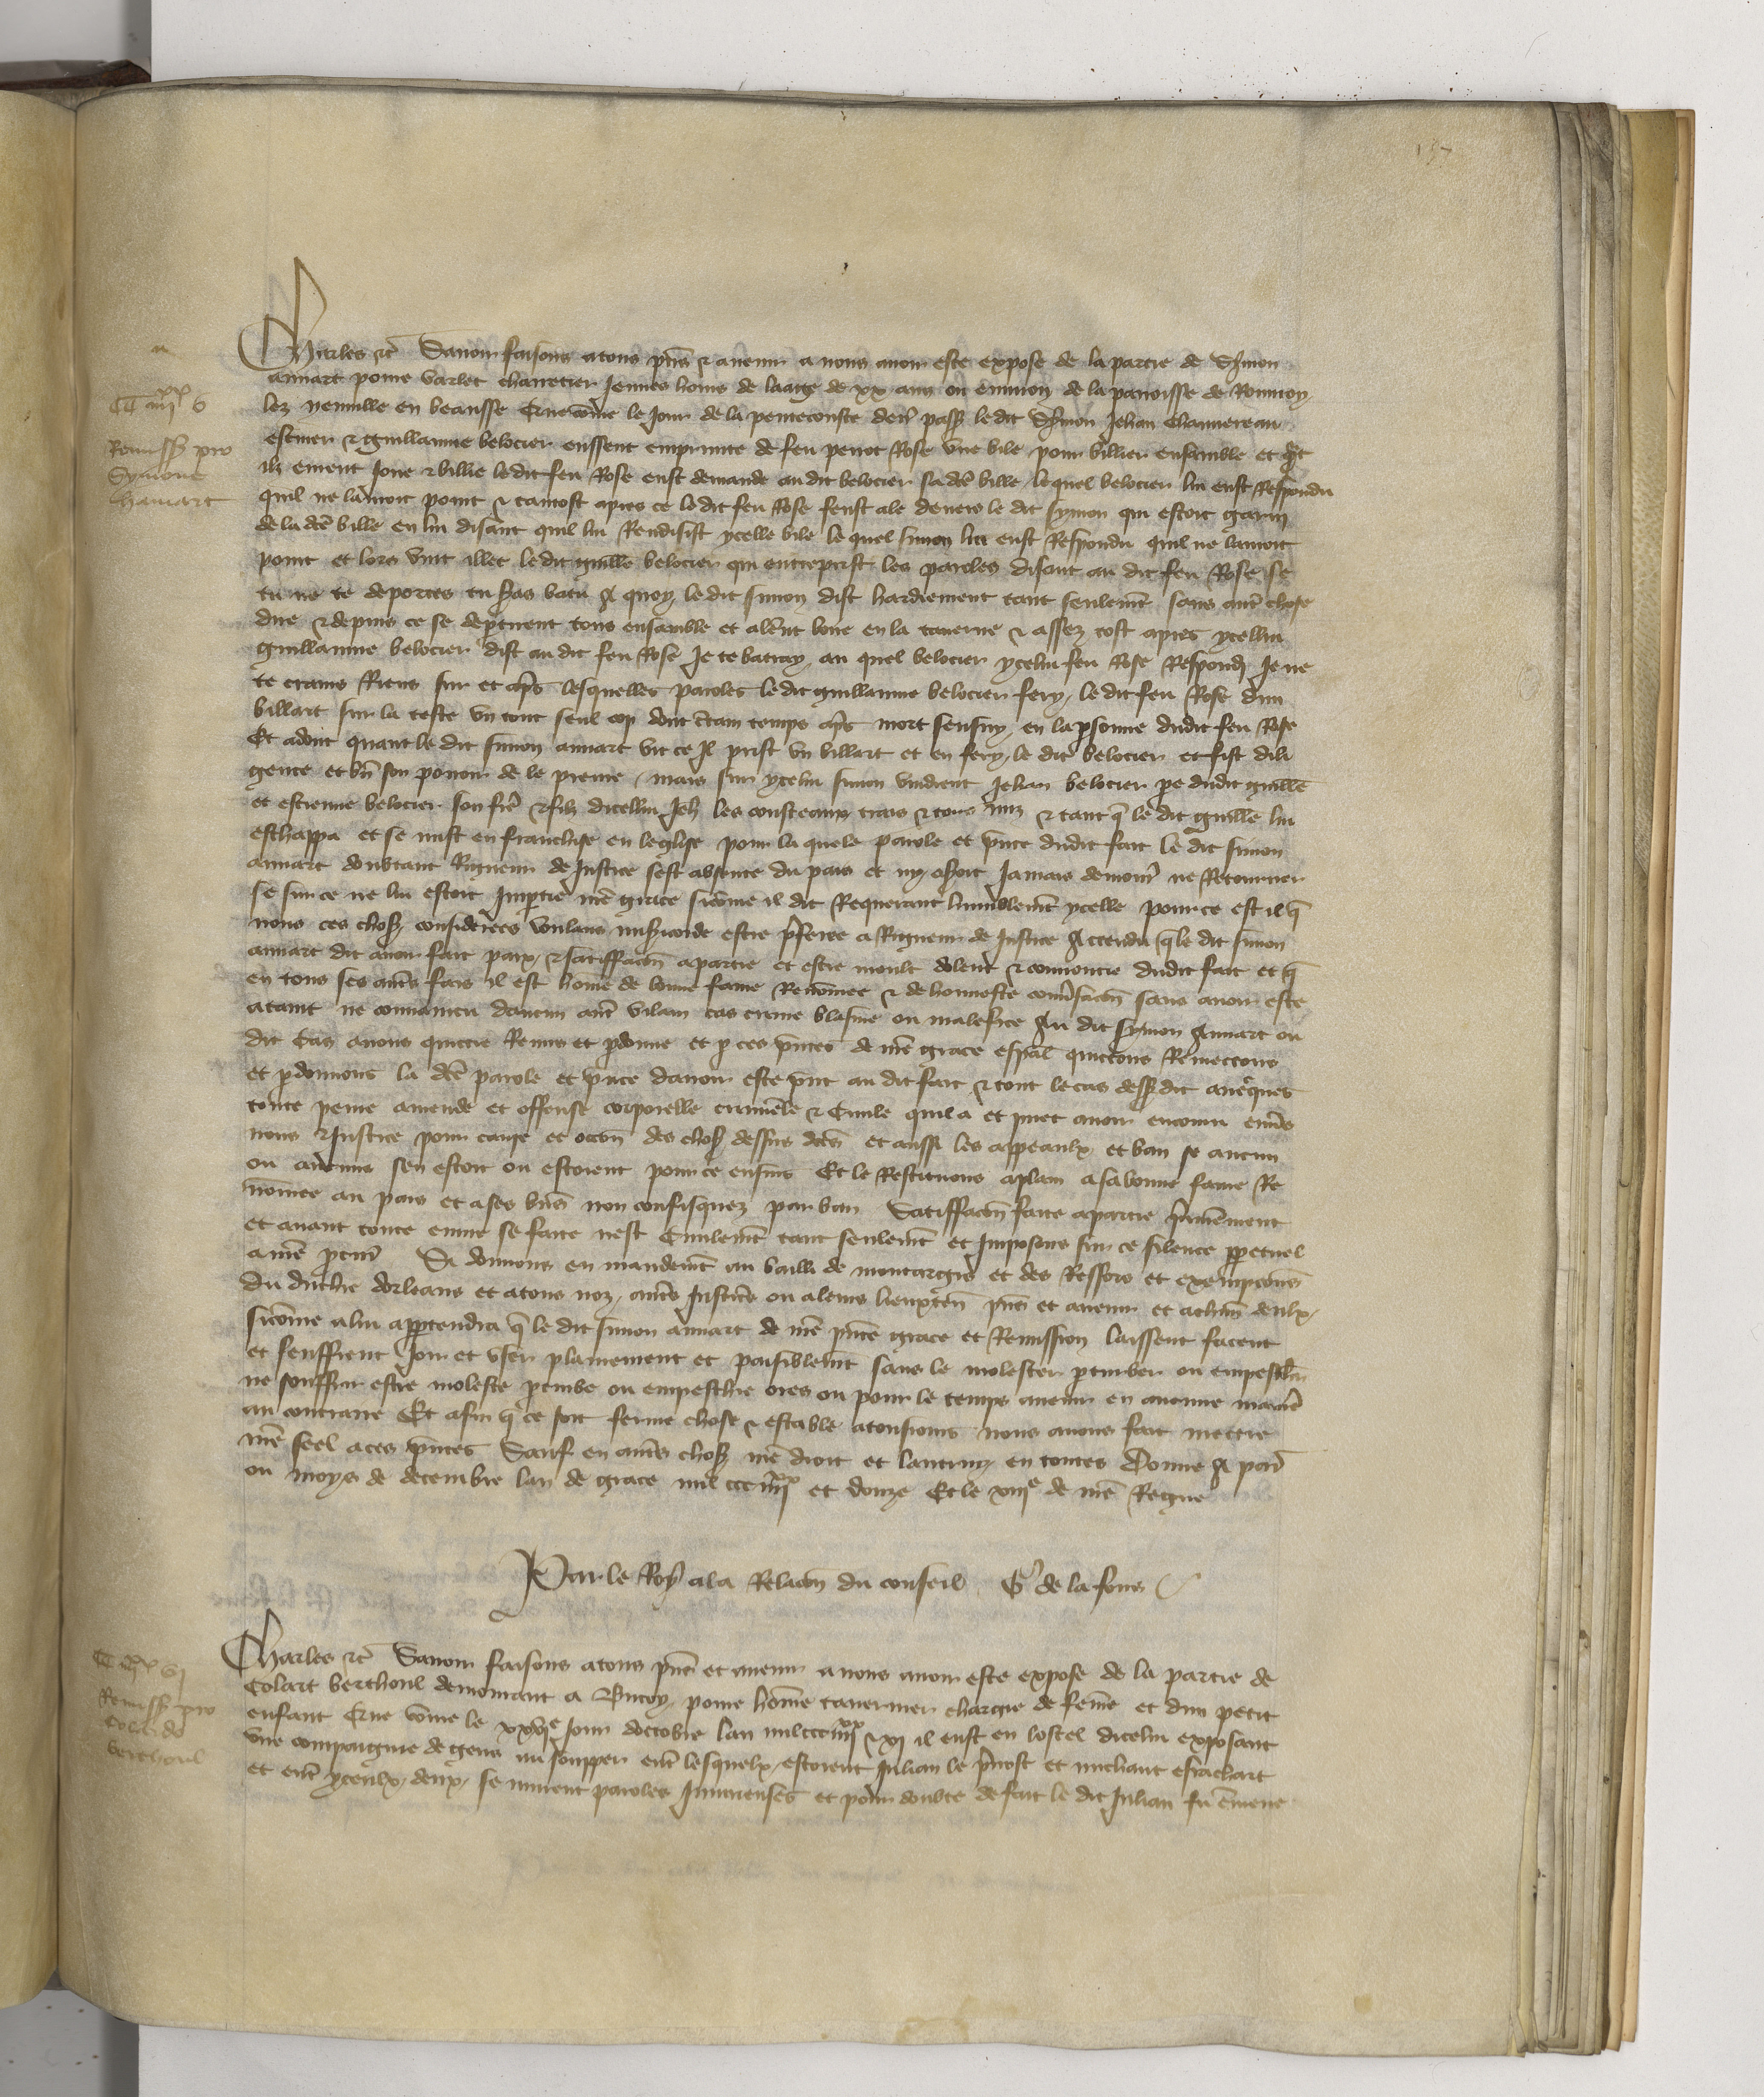 197
Charles etc̃ Savoir faisons a tous p̃ns & avenir a nous avoir este expose de la partie de Simon
annart povre varlet charretier jeunes homs de laage de xx ans ou environ de la parroisse de Rouvroy
lez nemville en beausse Que cõme le jour de la penthecouste dern̄ pass̃ le dit Symon Jehan Chauvereau
escuier & guillaume belocier eussent emprunte de feu perrot Rose une bile pour billier ensemble et q̃nt
ilz eurent joue & billie le dit feu Rose eust demande au dit belocier sa dc̃e bille lequel belocier lui eust Respondu
quil ne lavoit point & tantost apres ce le dit feu Rose feust ale devers le dit symon qui estoit garny
de la dc̃e bille en lui disant quil lui Rendisist ycelle bile le quel simon lui eust Respondu quil ne lavoit
point et lors vint illec le dit guill̃e belocier qui entreprist les paroles disant au dit feu Rose se
tu ne te deportes tu seras batu A quoy le dit simon dist hardiement tant seulem̃t sans autr̃ chose
dire & depuis ce se dep̃tirent tous ensamble et aler̃nt boire en la taverne & assez tost apres ycellui
guillaume belocier dist au dit feu Rose Je te batray au quel belocier ycelui feu Rose Respondi Je ne
te crains Riens sur et ap̃s lesquelles paroles le dit guillaume belocier fery le dit feu Rose dun
billart sur la teste un tout seul cop dont c̃tain temps ap̃s mort sensuy en la p̃sonne dudit feu Rose
Et adont quant le dit simon annart vit ce Il prist un billart et en fery le dit belocier et fist dili
gence et b̃n son povoir de le prenre mais sur ycelui simon vindrent Jehan belocier p̃e dudit guill̃e
et estienne belocier son fr̃e & filz dicellui Jeh̃ les cousteaux trais & tous nuz & tant q̃ le dit guill̃e lui
eschappa et se mist en franchise en leglise pour laquele parole et p̃nce dudit fait le dit simon
annart doubtant Rigueur de justice sest absente du pais et ny oseroit jamais demour̃ ne Retourner
se sur ce ne lui estoit imp̃tie nr̃e grace sicõme il dit Requerant humblem̃t ycelle pour ce est il q̃
nous ces chos̃ considerees voulans mis̃icorde estre p̃feree a Rigueur de justice Attendu q̃ le dit simon
annart dit avoir fait paix & satiffac̃on a partie et estre moult dolent & courroucie dudit fait et q̃
en tous ses autr̃s fais il est hom̃e de bonne fame Renõmee & de honneste cõṽsac̃on sans avoir este
ataint ne convaincu daucun autr̃ vilain cas crime blasme ou malefice Au dit symon Annart ou
dit cas avons quictie Remis et p̃donne et p̃ ces p̃ntes de nr̃e grace esp̃al quictons Remectons
et p̃donnons la dc̃e parole et p̃nce davoir este p̃nt au dit fait & tout le cas dess̃dit avecques
toute peine amende et offense corporelle criminele & Civile quil a et puet avoir encouru enṽs
nous & justice pour cause et occ̃on des chos̃ dessus dc̃es et aussi les appeaulx et ban se aucun
ou aucuns sen estoit ou estoient pour ce ensuis Et le Restituons a plain a sa bonne fame Re
nõmee au pais et a ses biens non confisquez par ban Satiffac̃on faite a partie p̃mierement
et avant toute euvre se faite nest Civilem̃t tant seulem̃t et Imposons sur ce silence pp̃etuel
a nr̃e p̃cur̃ Si donnons en mandem̃t au bailli de montargis et des Ressors et exempc̃ons
du duchie dorleans et a tous noz autr̃s justic̃s ou a leurs lieuxten̄ p̃ns et avenir et a chun̄ deulx
sicõme a lui app̃tendra q̃ le dit simon annart de nr̃e p̃nte grace et Remission laissent facent
et seuffrent joir et user plainement et paisiblem̃t sans le molester p̃turber ou empesch̃r
ne souffrir estre moleste p̃turbe ou empeschie ores ou pour le temps avenir en aucune manier̃
au contraire Et afin q̃ ce soit ferme chose & estable a tousjours nous avons fait mectre
nr̃e seel a ces p̃ntes Sauf en autr̃s chos̃ nr̃e droit et lautruy en toutes Donne A par̃
ou moys de decembre lan de grace mil ccc iiiixx et douze Et le xiiie de nr̃e Regne
Par le Roy a la Relac̃on du conseil G̃ de la fons
CC iiiixx v
Remiss̃ pro
Symone
hamart
Charles etc̃ Savoir faisons a tous p̃ns et avenir a nous avoir este expose de la partie de
Colart berthoul demourant a Bucoy povre hom̃e tavernier chargie de fem̃e et dun petit
enfant Que cõme le xxvie jour doctobre lan mil ccc iiiixx & xi il eust en lostel dicelui exposant
une compaignie de gens au soupper entr̃ lesquelx estoient Julian le p̃vost et michaut estachart
et entr̃ yceulx deux se murent paroles injurieuses et pour doubte de fait le dit Julian fu em̃ene
CC iiiixx vj
Remiss̃ pro
Colardo
berthoul